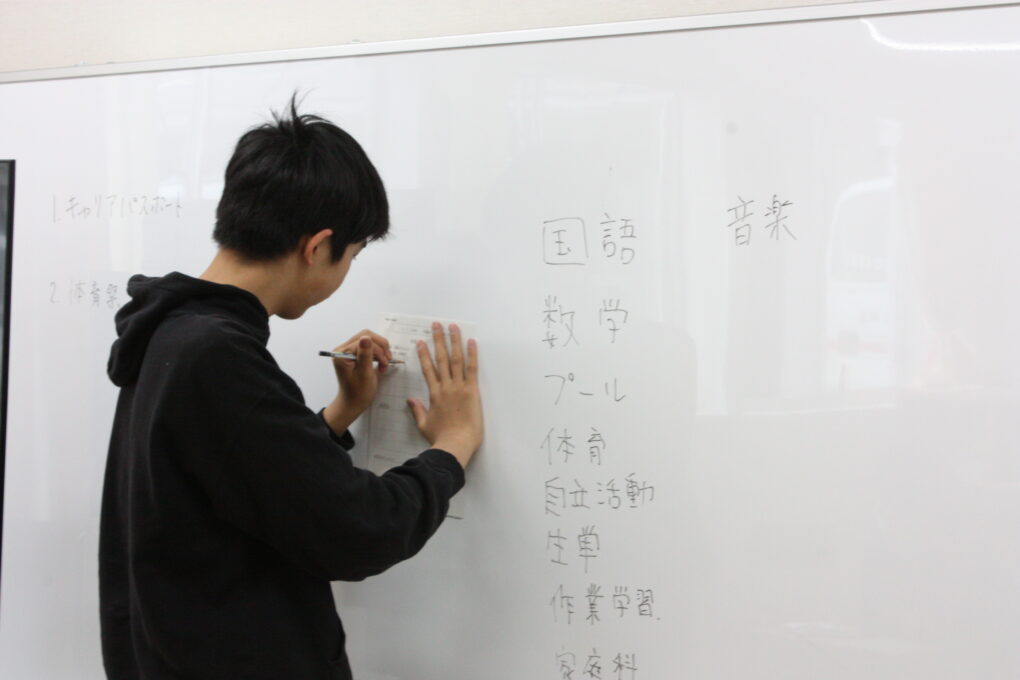 1. キャリアパスポート
2. 体育祭
国語
数学
プール
体育
自立活動
生単
作業学習.
家庭科
音楽